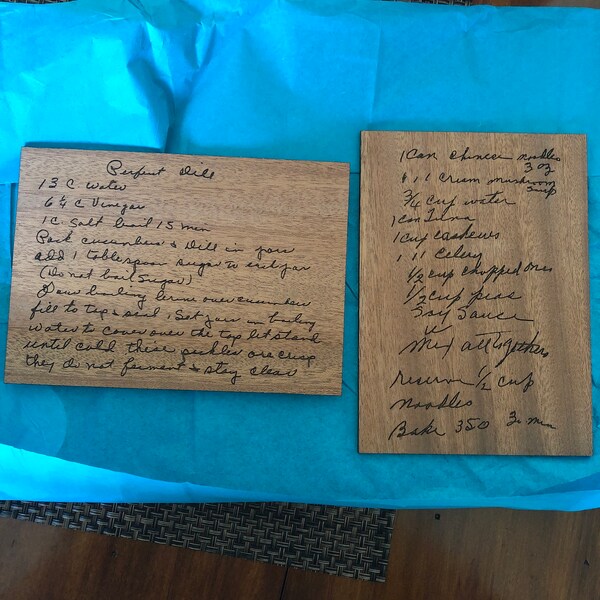 Perfect Dill
13 C water
6 1/4 C Vinegar
1 C Salt boil 15 min
Pack cucumbers & Dill in jars
add 1 tablespoon sugar to each jar
(Do not boil Sugar)
Pour boiling brine over cucumbers
fill to top & seal. Set jars in boiling
water to cover over the top let stand
until cold these pickles are crisp
they do not ferment & stay clear
1 Can chinese noodles
3 oz
1 11 Cream mushroom
soup
3/4 cup water
1 can Tuna
1 cup cashews
1 11 Celery
1/2 cup chopped onion
1/2 cup peas
Soy Sauce
Mix all together
reserve 1/2 cup
noodles
Bake 350 30 min